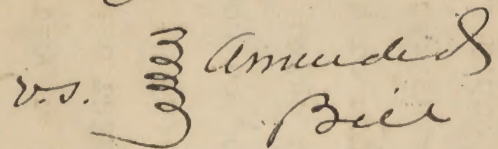 v.s. Amended
Bill